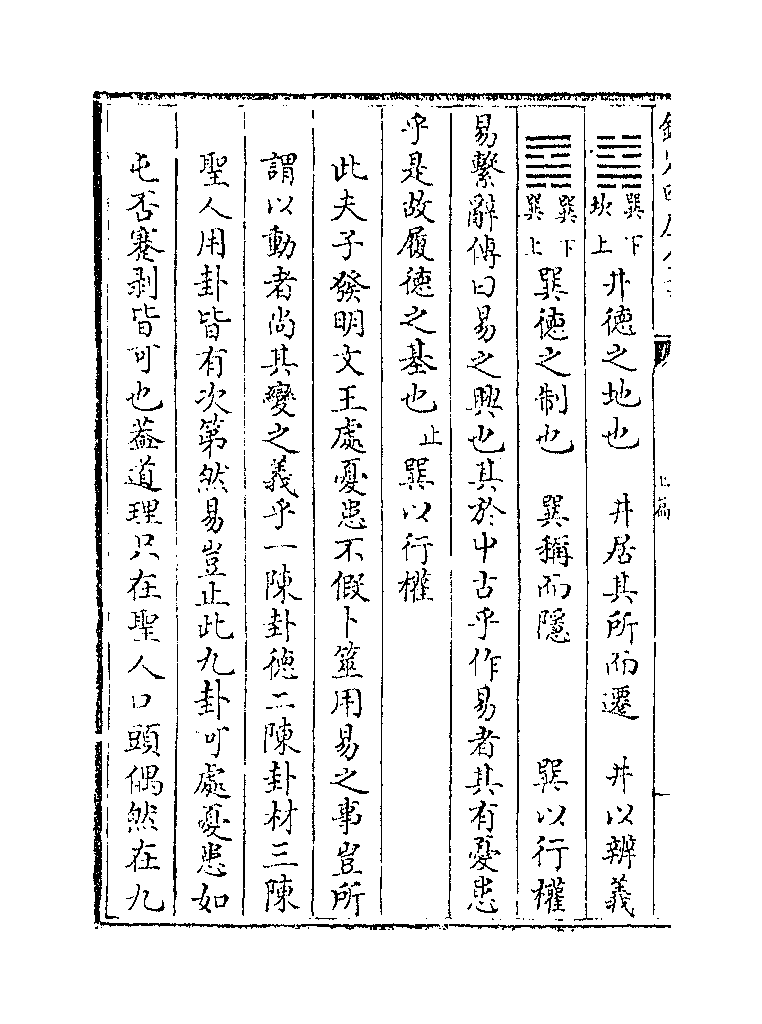 ䷯巽下坎上井德之地也　井居其所而遷　井以辨義
䷸巽下巽上巽德之制也　巽稱而隱　巽以行權
易繫辭傳曰易之興也其於中古乎作易者其有憂患
乎是故履德之基也止巽以行權
此夫子發明文王處憂患不假卜筮用易之事豈所
謂以動者尚其變之義乎一陳卦德二陳卦材三陳
聖人用卦皆有次第然易豈止此九卦可處憂患如
屯否蹇剥皆可也葢道理只在聖人口頭偶然在九